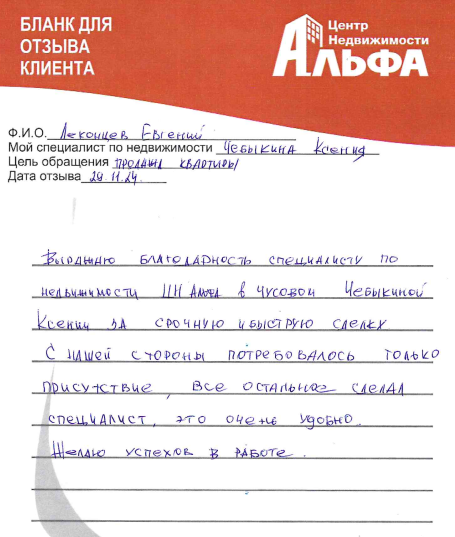 БЛАНК ДЛЯ
ОТЗЫВА
КЛИЕНТА
Центр
Недвижимости
АЛЬФА
Ф.И.О. Лекомцев Евгений
Мой специалист по недвижимости Чебыкина Ксения
Цель обращения продажа квартиры
Дата отзыва 29.11.24.
Выражаю благодарность специалисту по
недвижимости ЦН Альфа в Чусовом Чебыкиной
Ксении за срочную и быструю сделку
С нашей стороны потребовалось только
присутствие, все остальное сделал
специалист, это очень удобно.
Желаю успехов в работе.